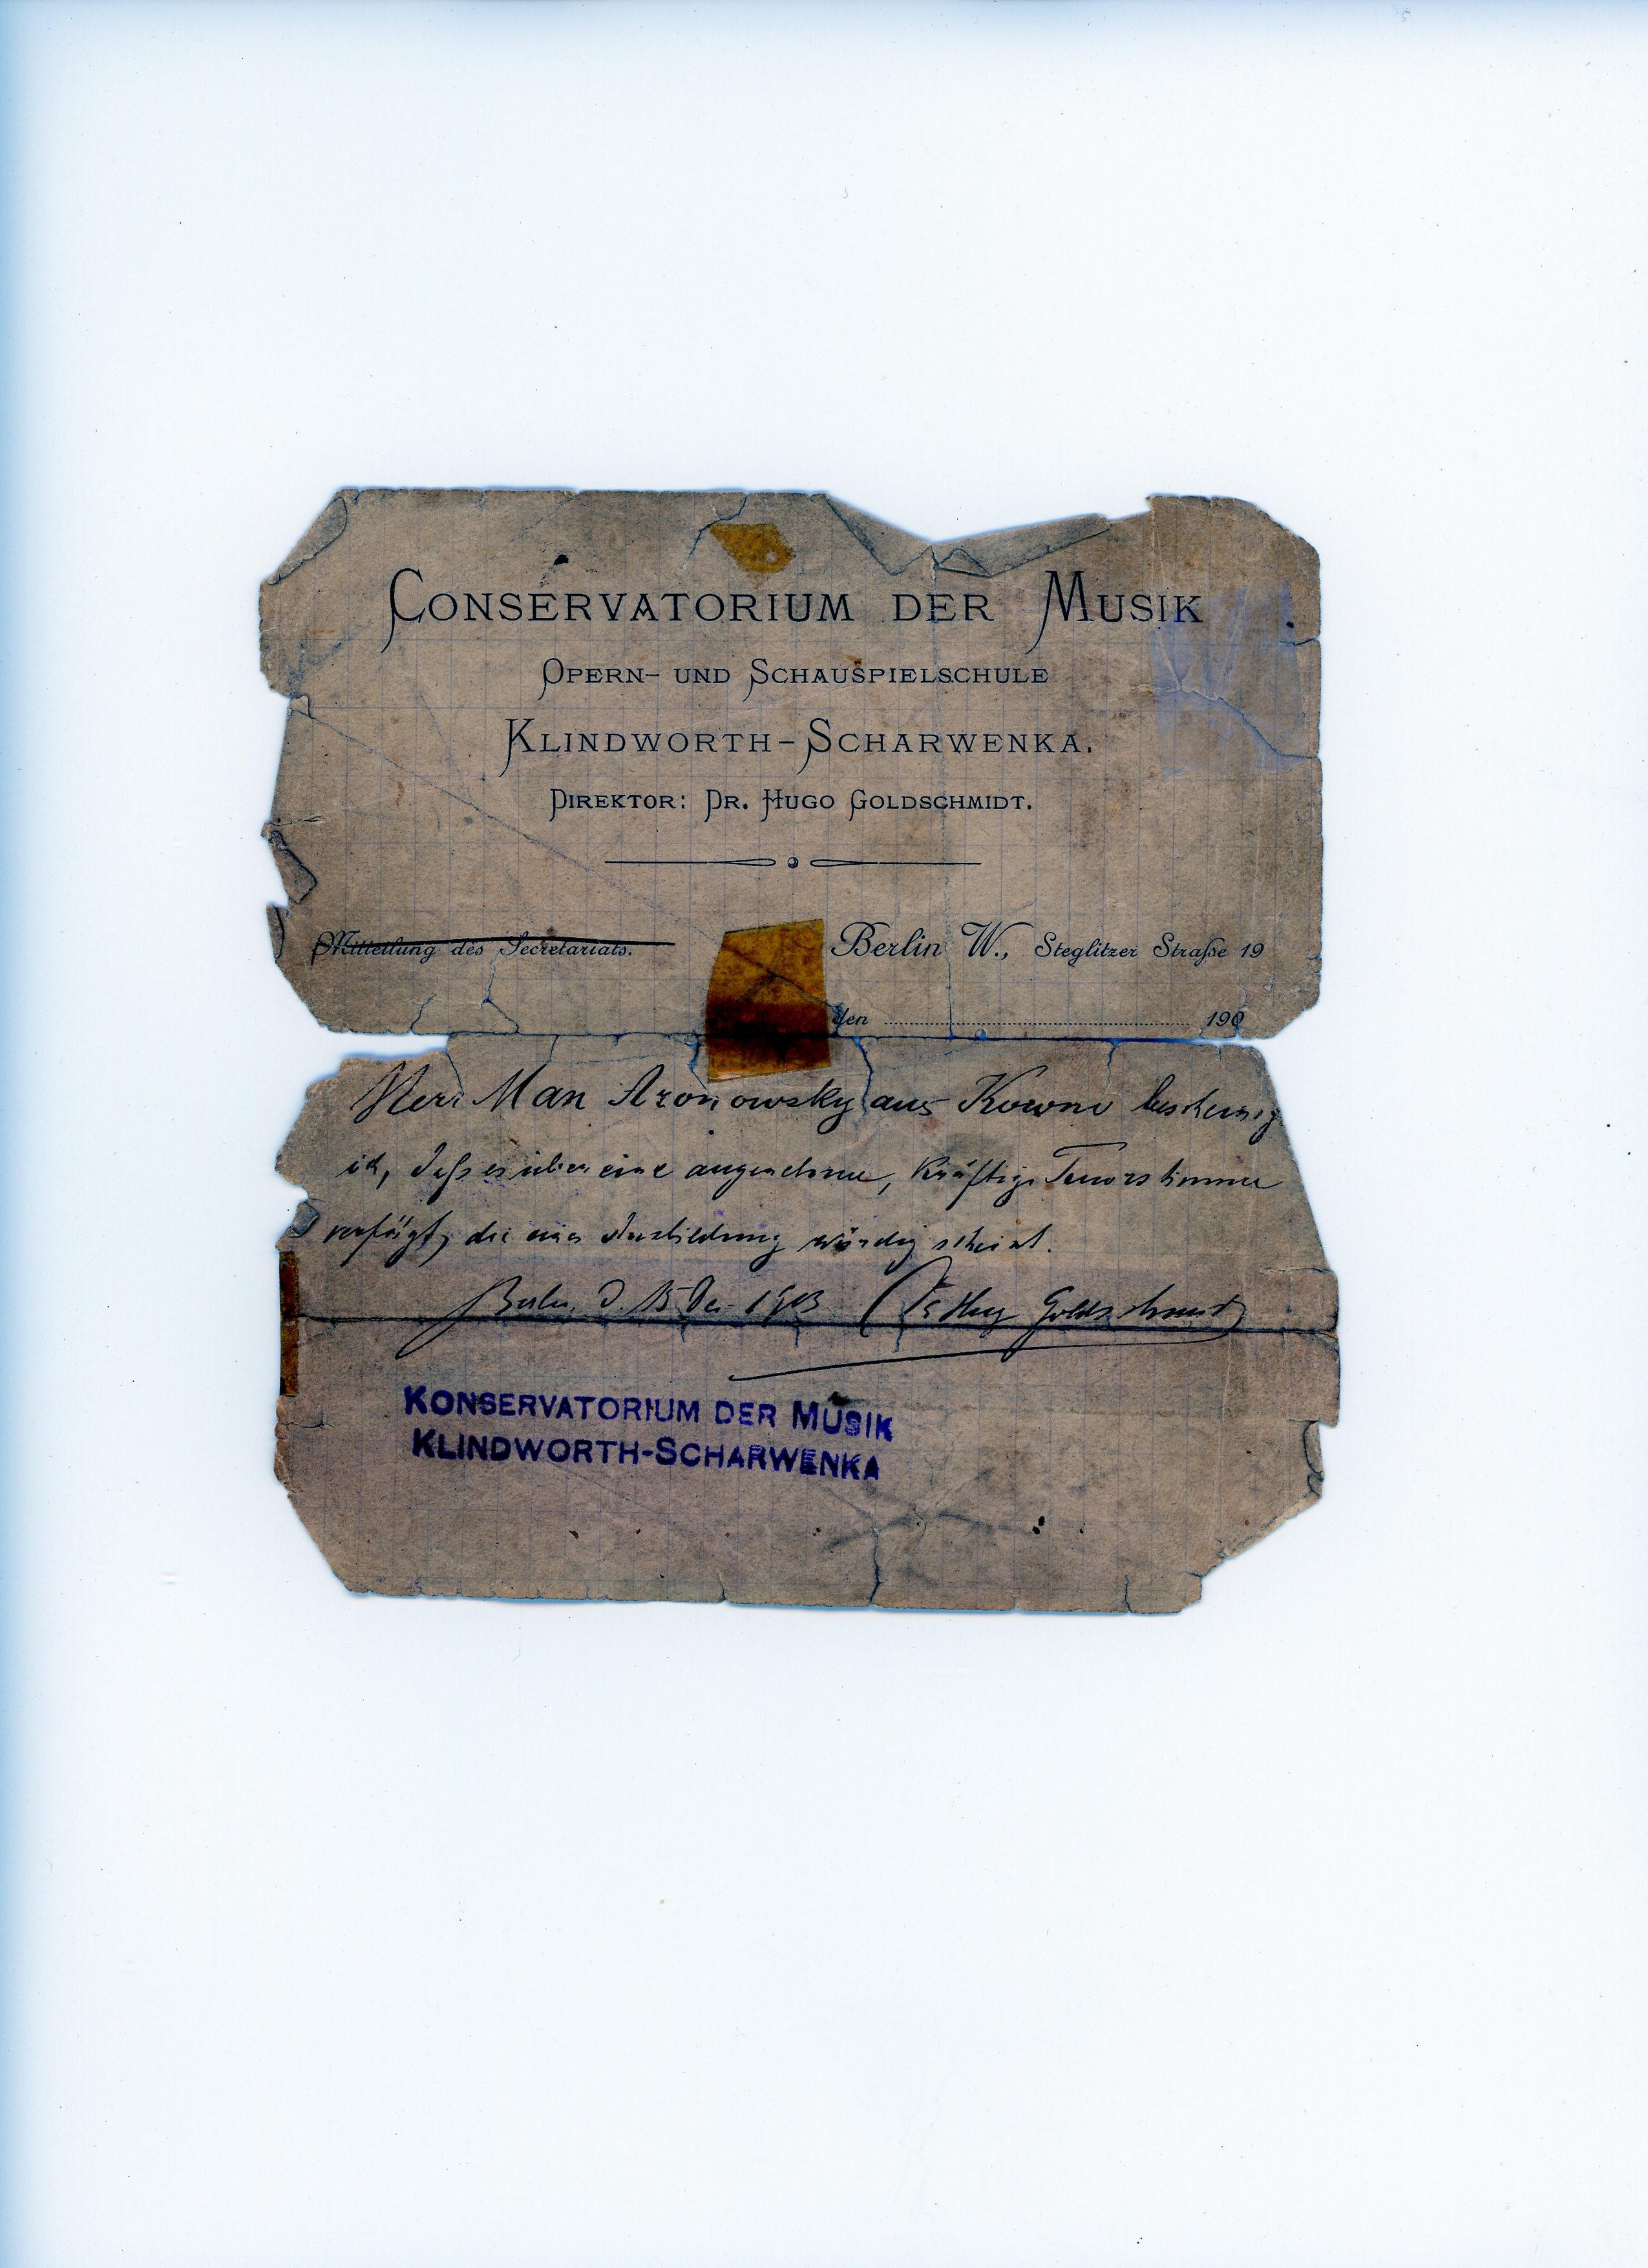 CONSERVATORIUM DER MUSIK
OPERN- UND SCHAUSPIELSCHULE
KLINDWORTH-SCHARWENKA.
DIREKTOR: DR. HUGO GOLDSCHMIDT.
Mitteilung des Secretariats.
Berlin W., Steglitzer Straße 19
den 190
Herr Man Aronowsky aus Kowno bescheinig
ich, daß er über eine angenehme, kräftige Tenorstimme
verfügt, die einer Ausbildung würdig scheint.
Berlin, d. 15 Dez. 1903 Dr Hugo Goldschmidt
KONSERVATORIUM DER MUSIK
KLINDWORTH-SCHARWENKA